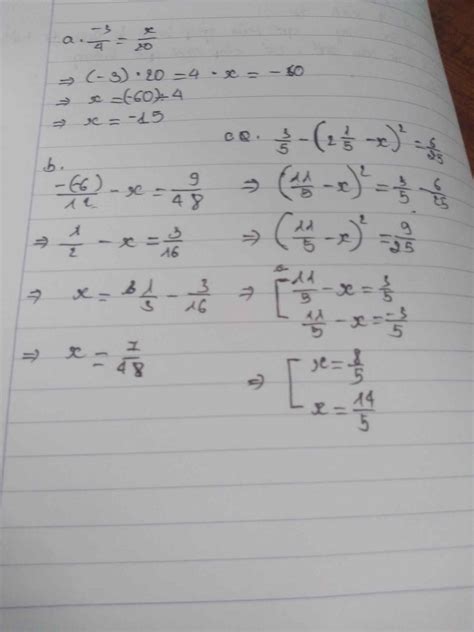 a. -3/4 = x/20
⇒ (-3) · 20 = 4 · x = -60
⇒ x = (-60) : 4
⇒ x = -15
b.
-(-6)/12 - x = 9/48
⇒ 1/2 - x = 3/16
⇒ x = 1/3 - 3/16
⇒ x = 7/48
c. 3/5 - (2 1/5 - x)² = 6/25
⇒ (11/5 - x)² = 3/5 - 6/25
⇒ (11/5 - x)² = 9/25
⇒ [ 11/5 - x = 3/5
11/5 - x = -3/5
⇒ [ x = 8/5
x = 14/5